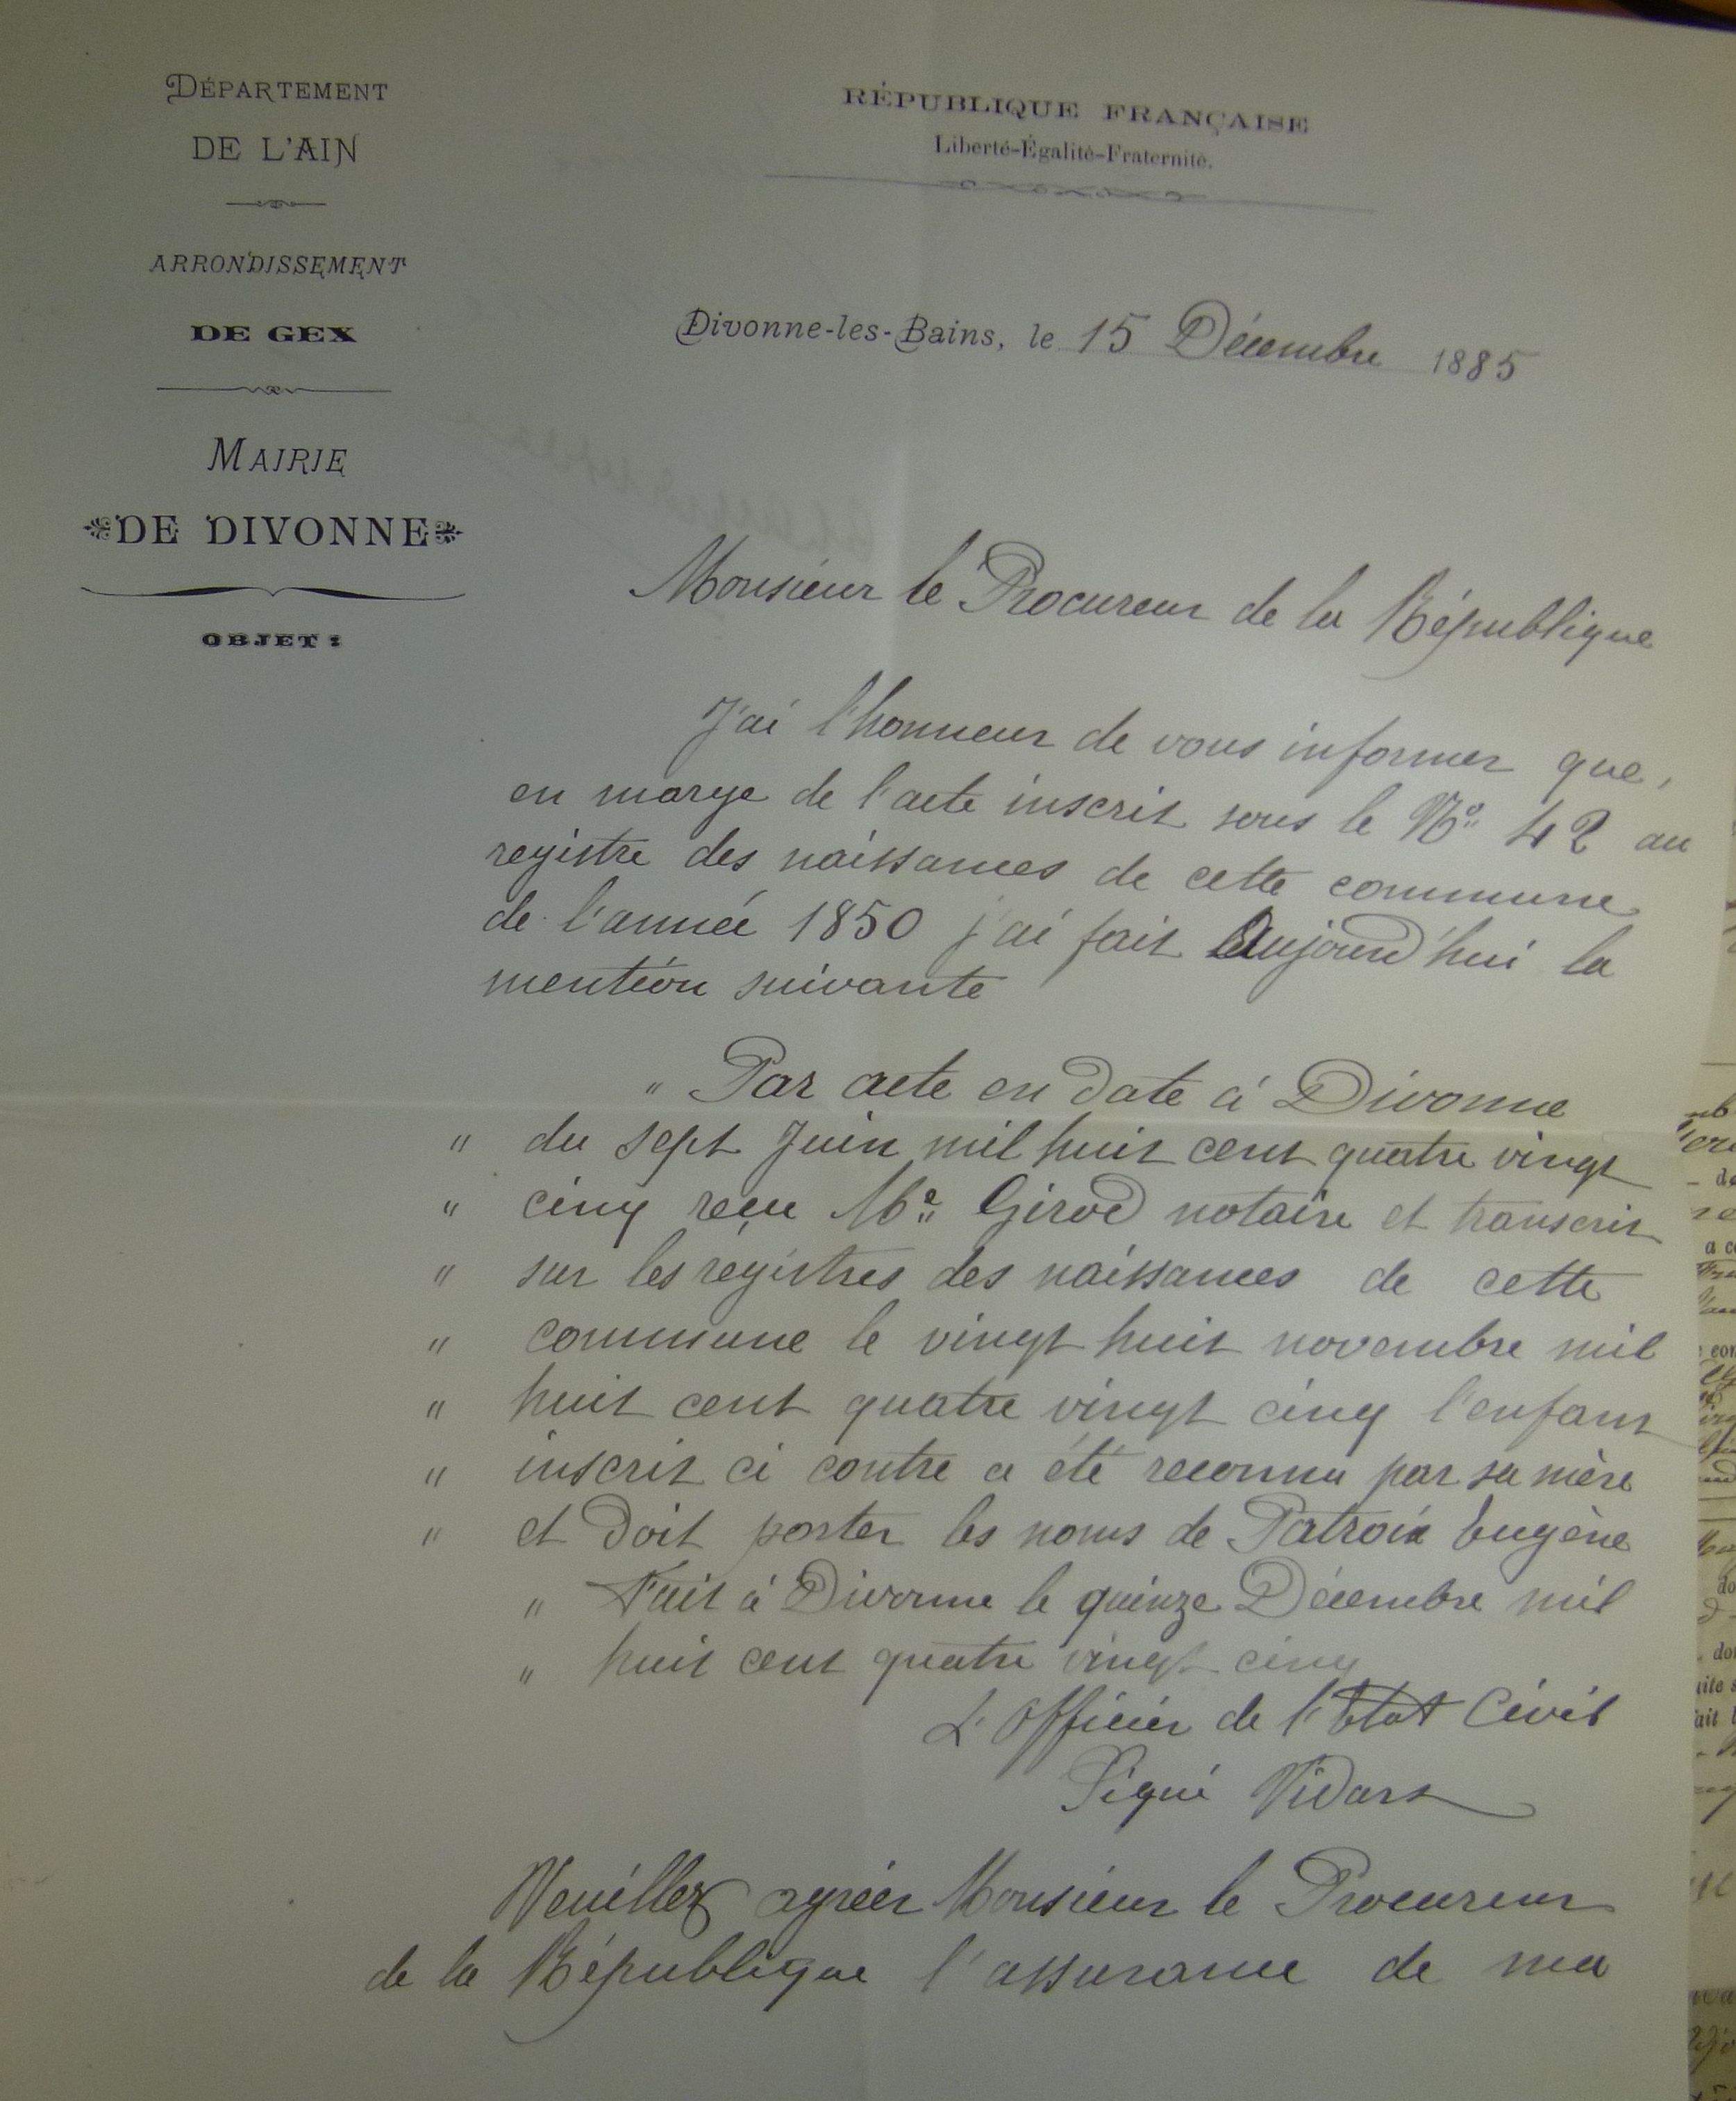 DÉPARTEMENT
DE L'AIN
ARRONDISSEMENT
DE GEX
MAIRIE
DE DIVONNE
OBJET :
RÉPUBLIQUE FRANÇAISE
Liberté-Égalité-Fraternité.
Divonne-les-Bains, le 15 Décembre 1885
Monsieur le Procureur de la République
J'ai l'honneur de vous informer que,
en marge de l'acte inscrit sous le No 42 au
registre des naissances de cette commune
de l'année 1850 j'ai fait Aujourd'hui la
mention suivante
" Par acte en date à Divonne
" du sept Juin mil huit cent quatre vingt
" cinq reçu Me Girod notaire et transcrit
" sur les registres des naissances de cette
" commune le vingt huit novembre mil
" huit cent quatre vingt cinq l'enfant
" inscrit ci contre a été reconnu par sa mère
" et doit porter les noms de Patroix Eugène
" Fait à Divonne le quinze Décembre mil
" huit cent quatre vingt cinq
L'Officier de l'Etat Civil
Signé Vidart
Veuillez agréer Monsieur le Procureur
de la République l'assurance de ma